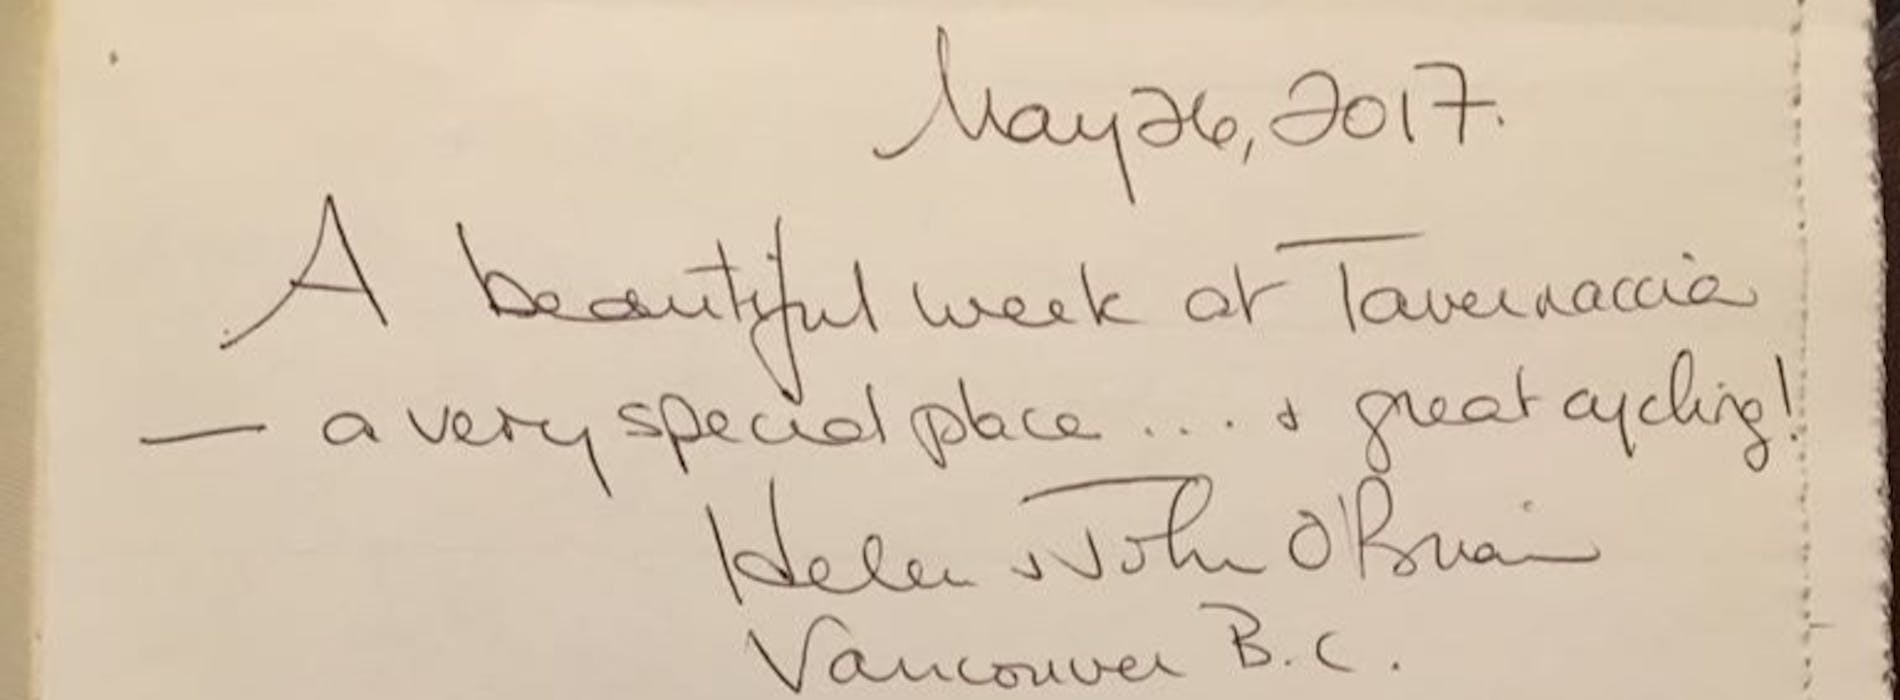 May 26, 2017.
A beautiful week at Tavernaccia
— a very special place .... & great cycling!
Helen & John O'Brian
Vancouver B.C.